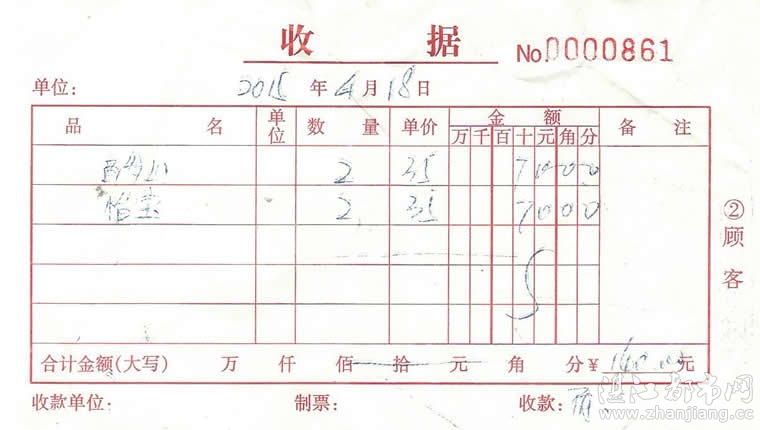 收 据 No.0000861
单位： 2015 年 4 月 18 日
品 名 单位 数 量 单价 金 额 备 注
万 千 百 十 元 角 分
2 35 7 0 0 0
怡宝 2 35 7 0 0 0
②顾客
合计金额(大写) 万 仟 佰 拾 元 角 分 ¥ 140.00 元
收款单位： 制票： 收款：
湛江都市网
www.zhanjiang.cc